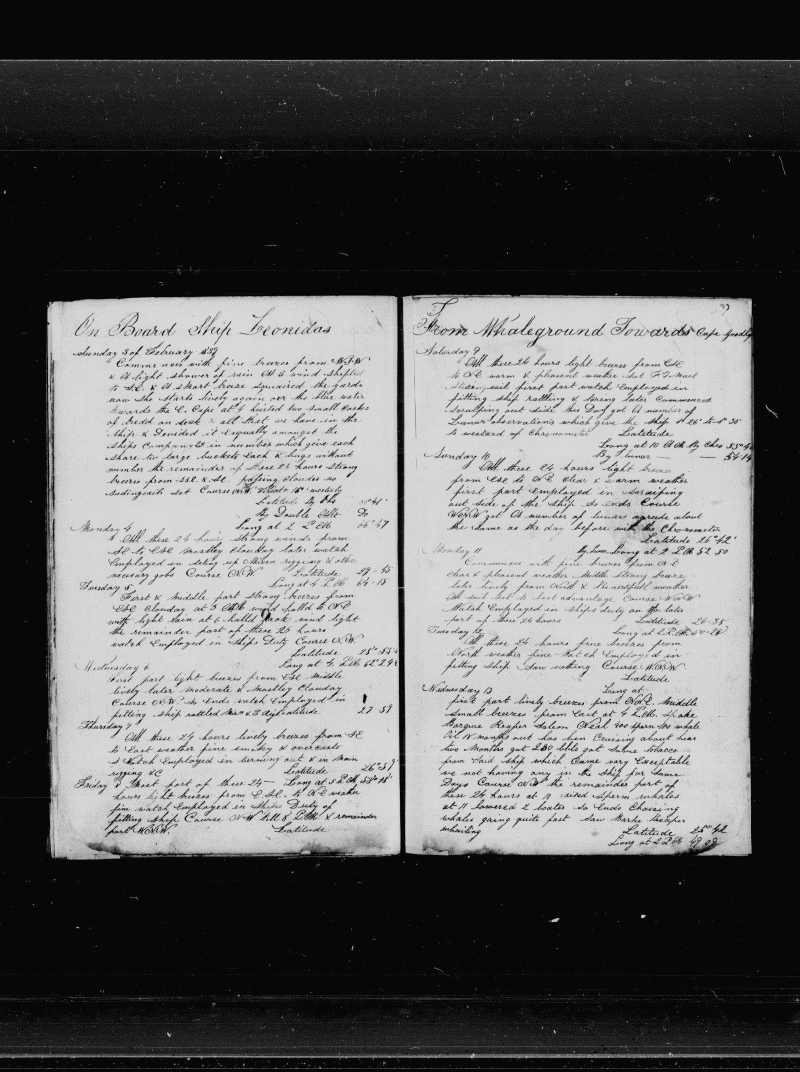 On Board Ship Leonidas
Sunday 3 of February 1839
Commences with fine breezes from W.S.W
& A light shower of rain At 3 wind shifted
to S.E. & A smart breeze squaired the yards
now she starts lively again over the blue water
towards the C. Cape at 4 hoisted two small casks
of bredd on deck & all that we have in the
Ship & Devided it Equally amongst the
Ships Company in number which give each
share two large buckets Each & bugs without
number the remainder of these 24 hours Strong
breezes from SSE & SE passing Cloudes no
Sodingsuits set Course westerly
Latitude By Obs 41'
By Double Altt Do
Monday 4 Long at 2 P.M 66° 47
All these 24 hours strong winds from
SE to ESE Mostley Clouday later watch
Employed in seting up Mizen rigging & other
necesary jobs Course N.W Latitude 29 - 45
Tuesday 5 Long at 4 P.M 64 - 15
First & Middle part Strong breezes from
ESE Clouday at 3 wind halld to N.E
with light rain at 6 halld back wind light
the remainder part of these 23 hours
watch Employed in Ships Duty Course N.W.
Latitude 28°
Wednesday 6 Long at 4 P.M 62°
First part light breezes from ESE Middle
lively later Moderate & Mostley Clouday
Course N.W. So Ends watch Employed in
fitting ship rattled Latitude 27 59
Thursday 7
All these 24 hours lively breezes from SE
to East weather fine smokey & overcasts
Watch Employed in turning out & in Main
rigging &C Latitude 26° 59'
Friday 8 Most part of these 24 — Long at 5 P.M 58° 18'
hours light breezes from E.S.E. to N.E weather
fine watch Employed in Ships Duty of
fitting ship Course N-W till 8 P.M. & remainder
part W.N.W Latitude
93
From Whaleground Towards Cape Goodhope
Saturday 9
All these 24 hours light breezes from ESE
to N.E warm & pleasent weather
first part watch Employed in
fitting ship rattling & tarring later Commenced
Scraiping out side this Day got A number of
Lunar observations which give the Ship 1° 26' to 1° 36'
to westard of Chronometer Latitude
Long at 10 A.M By Chro
Sunday 10 By Lunar — 54-14
All these 24 hours light breezes
from ESE to N.E Clear & warm weather
first part Employed in Scraiping
out side of the Ship So Ends Course
W.N.W got A number of lunars agreade about
the same as the day before with the Chronometer
Latitude 26° 42'
Monday 11 By Lun. Long at 2 P.M 52 50
Commences with fine breezes from N.E
clear & pleasent weather Middle Strong breeze
later lively from Said & beautifull weather
All sail set to best advantage Course N.W
Watch Employed in Ships duty on the later
part of these 24 hours Latitude 26-38
Tuesday 12 Long at 2 P.M. 50-28
All these 24 hours fine breezes from
North weather fine Watch Employed in
fitting Ship Saw nothing Course W.N.W
Latitude
Wednesday 13 Long at
first part lively breezes from N.N.E. Middle
small breezes from East at 4 P.M. Spoke
Barque Reaper Salem Neal 400 Sperm 300 whale
Oil months out has ben Cruising about hear
two Months got 200 bbls got Some tobacco
from Said Ship which Came vary Exceptable
we not having any in the Ship for Some
Days Course N.W the remainder part of
these 24 hours at 10 raised Sperm whales
at 11 lowered 2 boates So Ends Chaising
whales going quite fast Saw Barke Reaper
whailing Latitude 25° 42
Long at 2 P.M 49 08